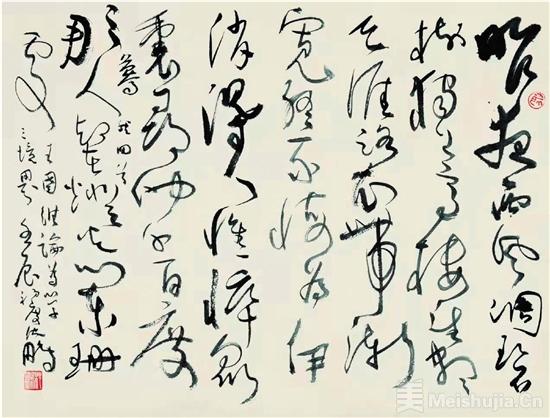 昨夜西风凋碧
树独上高楼望断
天涯路衣带渐
宽终不悔为伊
消得人憔悴众
里寻他千百度
蓦然回首
那人却在灯火阑珊
处 王国维论为学
三境界
Meishujia.Cn